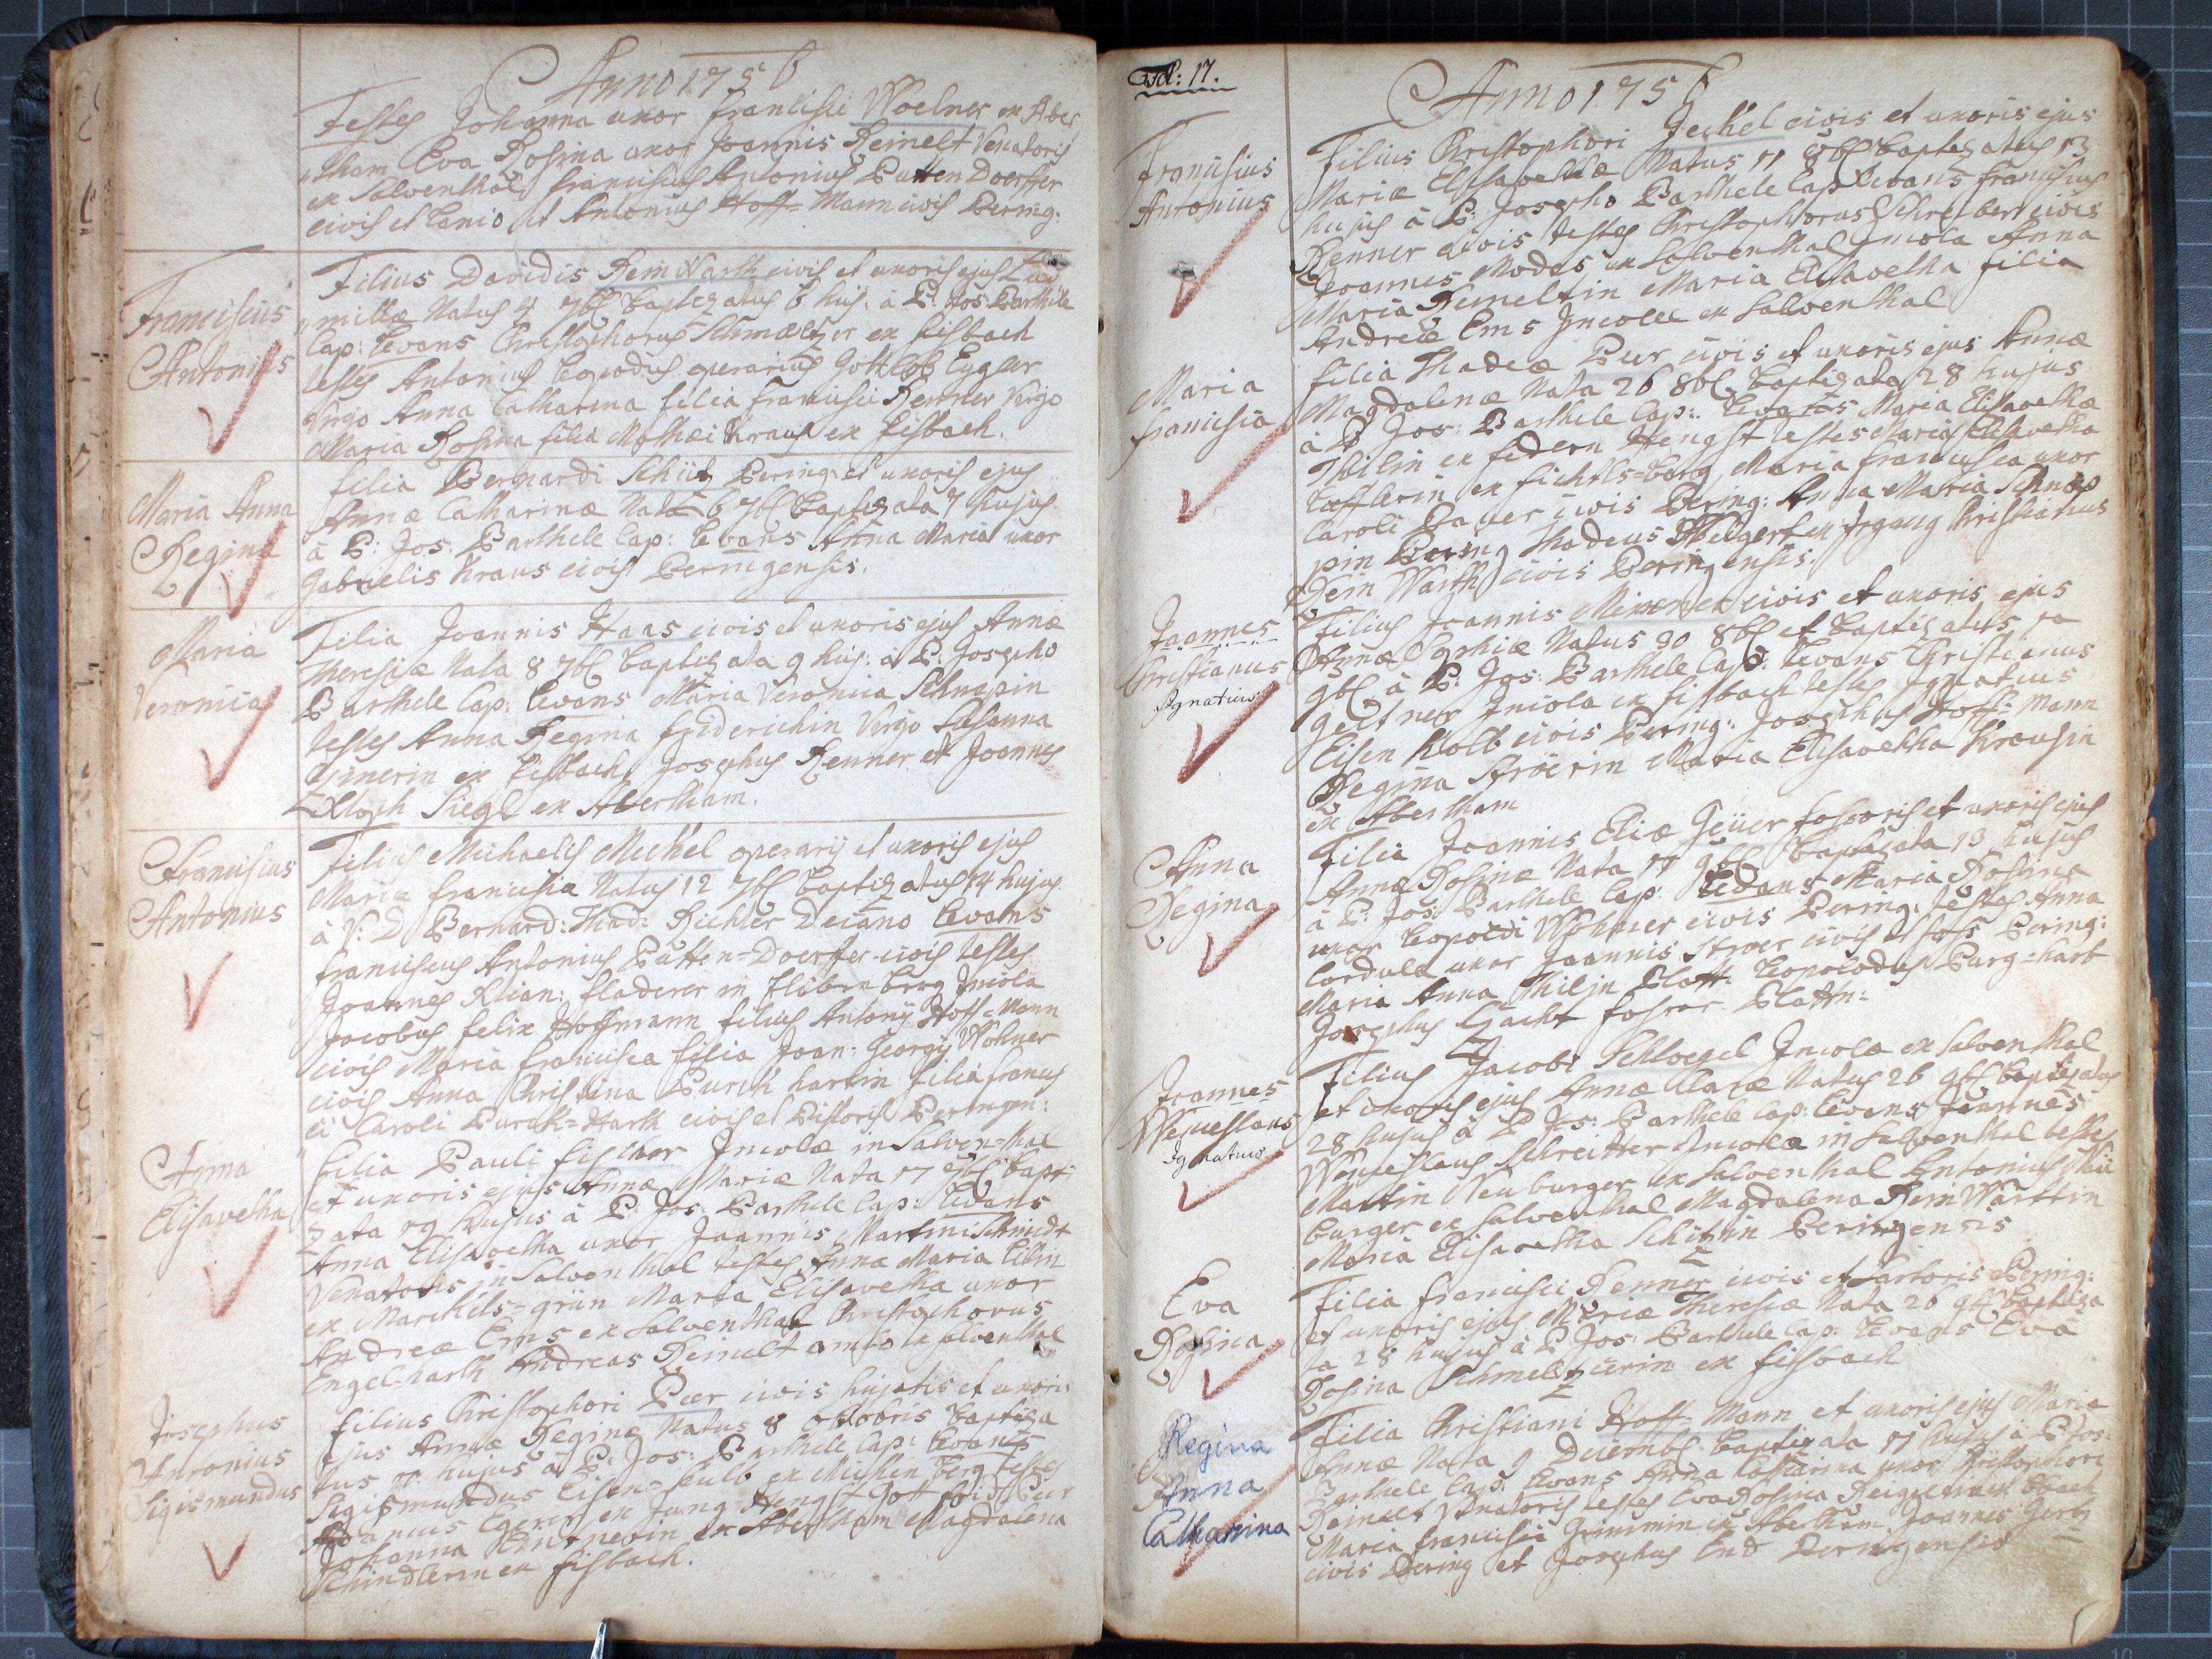 Anno 1756
Testes Johanna uxor Francisci Woelner ex Aber
tham Eva Rosina uxor Joannis Reinelt Venatoris
ex Salventhal Franciscus Antonius Putten Doerffer
civis et Lanio et Antonius Hoff=Mann civis Pering:
Franciscus
Antonius
Filius Davidis Rein Warth civis et uxoris ejus
millæ Natus 4 7bl baptizatus 6 huj: à P: Jos: Barthele
Cap: Levans Christophorus Schmeltzer ex Fisbach
testes Antonius Leopodus operarius Gottlob Egger
Virgo Anna Catharina filia Francisci Renner Virgo
Maria Rosina filia Mathæi Kraus ex Fisbach.
Maria Anna
Regina
Filia Bernardi Schütz Pering: et uxoris ejus
Annæ Catharinæ Nata 6 7bl baptizata 7 hujus
à P: Jos: Barthele Cap: Levans Anna Maria uxor
Gabrielis Kraus civis Peringensis.
Maria
Veronica
Filia Joannis Haas civis et uxoris ejus Annæ
Theresiæ Nata 8 7bl baptizata 9 huj: à P: Josepho
Barthele Cap: Levans Maria Veronica Schnapin
testes Anna Regina Friderichin Virgo Susanna
ex Fisbach Josephus Renner et Joannes
Siegl ex Abertham.
Franciscus
Antonius
Filius Michaelis Meichel operarij et uxoris ejus
Mariæ Franciscæ Natus 12 7bl baptizatus 14 hujus
à V: D Bernard: Thad: Richter Decano Levans
Franciscus Antonius Putten=Doerffer civis testes
Joannes Flader in Incola
Jacobus Felix Hoffmann filius Antonij Hoff=Mann
civis Maria Francisca filia Joan: Georgij Wohner
civis Anna Christina Purck hartin filia Francis
ci Caroli Purck=Harth civis et Pistoris Peringen:
Anna
Elisavetha
Filia Pauli Fischer Incolæ in Salven=thal
et uxoris ejus Annæ Mariæ Nata 17 7bl bapti
zata 19 hujus à P: Jos: Barthele Cap: Levans
Anna Elisavetha uxor Joannis Martini Schmidt
Venatoris in Salventhal testes Anna Maria
ex Marckhls=grün Maria Elisavetha uxor
Andreæ Ems ex Salventhal Christophorus
Engel=harth Andreas Reinelt ambo ex Salventhal
Josephus
Antonius
Sigismundus
Filius Christophori Peer civis hujatis et uxoris
ejus Annæ Reginæ Natus 8 octobris baptiza
tus hujus à P: Jos: Barthele Cap: Levans
Sigismundus Eisen=kulb ex testes
Egerer ex Jung Hengst Gottfrid Peer
Johanna ex Abertham Magdalena
Schindlerin ex Fisbach.
Fol: 17.
Anno 1756
Franciscus
Antonius
Filius Christophori Jeckel civis et uxoris ejus
Mariæ Elisavethæ Natus 11 8bl baptizatus 13
hujus à P: Josepho Barthele Cap: Levans Franciscus
Renner civis testes Christophorus Schreiber civis
Joannes Modes ex Salventhal Incola Anna
Maria Reineltin Maria Elisavetha filia
Andreæ Ems Incolæ ex Salventhal
Maria
Francisca
Filia Thadeæ Peer civis et uxoris ejus Annæ
Magdalenæ Nata 26 8bl baptizata 28 hujus
à P: Jos: Barthele Cap: Levans Maria Elisavetha
Thilin ex Federn Hengst testes Maria Elisavetha
Lefflerin ex Fichtls=berg Maria Francisca uxor
Caroli Bauer civis Pering: Anna Maria Schnap
pin Pering Thadeus Weigert ex Irgang Christianus
Rein Warth civis Peringensis.
Joannes
Christianus
Ignatius
Filius Joannis Meixner civis et uxoris ejus
Annæ Sophiæ Natus 30 8bl et baptizatus 1a
9bl à P: Jos: Barthele Cap: Levans Christianus
Geitner Incola ex Fisbach testes Ignatius
Eisen Kolb civis Pering: Josephus Hoff=Mann
Regina Ströerin Maria Elisavetha Krausin
ex Abertham
Anna
Regina
Filia Joannis Eliæ Geüer fossoris et uxoris ejus
Annæ Rosinæ Nata 11 9bl baptizata 13 hujus
à P: Jos: Barthele Cap: Levans Maria Rosina
uxor Leopoldi Wohner civis Pering: testes Anna
Cordula uxor Joannis Ströer civis et foss: Pering:
Maria Anna Thilin Platt: Leopoldus Purg=hart
Josephus Hackt fossor Plattn:
Joannes
Wenceslaus
Ignatius
Filius Jacobi Schloegel Incolæ ex Salventhal
et uxoris ejus Annæ Claræ Natus 26 9bl baptizatus
28 hujus à P: Jos: Barthele Cap: Levans Joannes
Wenceslaus Schreitter Incola in Salventhal testes
Martin Neuburger ex Salventhal Antonius Neü
burger ex Salventhal Magdalena Rein Warttin
Maria Elisavetha Schützin Peringensis
Eva
Rosina
Filia Francisci Renner civis et Sartoris Pering:
et uxoris ejus Mariæ Theresiæ Nata 26 9bl baptiza
ta 28 hujus à P: Jos: Barthele Cap: Levans Eva
Rosina Schmeltzerin ex Fisbach
Regina
Anna
Catharina
Filia Christiani Hoff=Mann et uxoris ejus Maria
Annæ Nata 9 Decembl baptizata 11 hujus à P: Jos:
Barthele Cap: Levans Anna Catharina uxor Christophori
Reinelt Venatoris testes Eva Rosina
Maria Francisca Grimmin ex Abertham Joannes Gerbl
civis Pering et Josephus End Peringensis